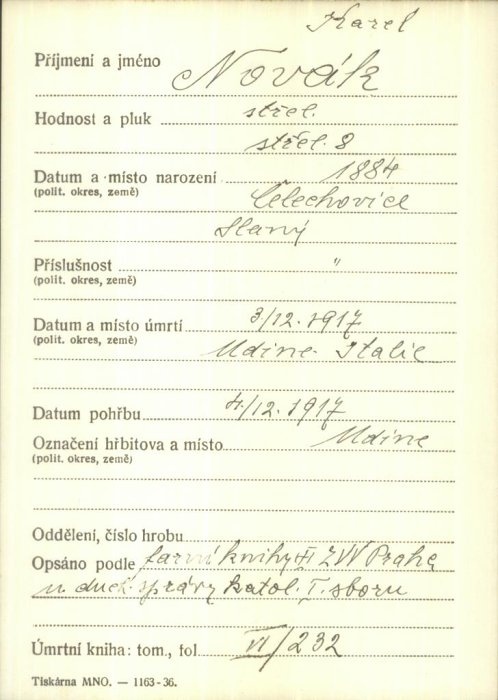 Karel
Příjmení a jméno Novák
Hodnost a pluk střel.
střel. 8
Datum a místo narození 1884
(polit. okres, země) Čelechovice
Slaný
Příslušnost "
(polit. okres, země)
Datum a místo úmrtí 3/12. 1917
(polit. okres, země) Udine. Italie
Datum pohřbu 4/12. 1917
Označení hřbitova a místo Udine
(polit. okres, země)
Oddělení, číslo hrobu
Opsáno podle farní knihy ZVV Praha
u. duch. správy katol. I. sboru
Úmrtní kniha: tom., fol. VI/232
Tiskárna MNO. — 1163-36.